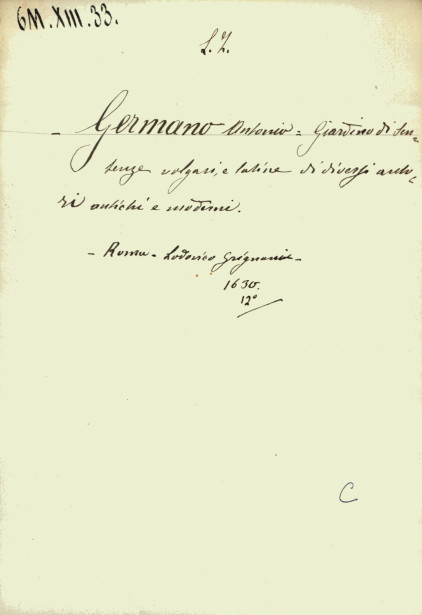 6M.XIII.33.
L. I.
- Germano Antonio = Giardino di Sen-
tenze volgari, e latine di diversi auto-
ri antichi e moderni.
- Roma - Lodovico Grignani -
1630.
12°
C